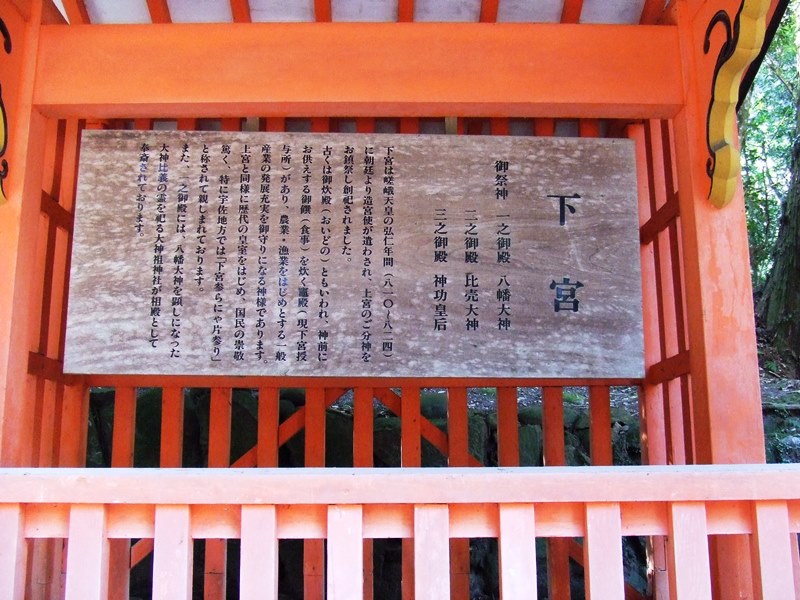 下宮
御祭神 一之御殿 八幡大神
二之御殿 比売大神、
三之御殿 神功皇后
下宮は嵯峨天皇の弘仁年間(八一〇〜八二四)
に朝廷より造宮使が遣わされ、上宮のご分神を
お鎮祭し創祀されました。
古くは御炊殿(おいどの)ともいわれ、神前に
お供えする御饌(食事)を炊く竈殿(現下宮授
与所)があり、農業・漁業をはじめとする一般
産業の発展充実を御守りになる神様であります。
上宮と同様に歴代の皇室をはじめ、国民の崇敬
篤く、特に宇佐地方では「下宮参らにゃ片参り」
と称されて親しまれております。
また、一之御殿には、八幡大神を顕しになった
大神比義の霊を祀る大神祖神社が相殿として
奉斎されております。